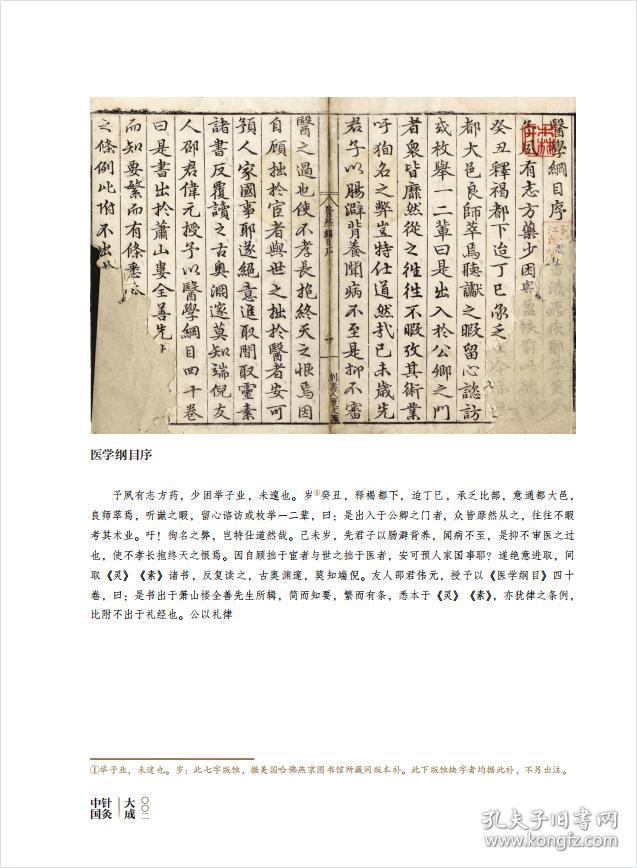 醫學綱目序
夙有志方藥少困
癸丑釋褐都下迨丁巳承乏
都大邑良師萃焉聽讞之暇留心諮訪
或枚舉一二輩曰是出入於公卿之門
者衆皆靡然從之徃徃不暇攷其術業
吁狥名之弊豈特仕道然㢤己未歲先
君子以腸澼背養聞病不至是抑不審
醫學綱目序
醫之過也使不孝長抱終天之恨焉因
自顧拙於宦者與世之拙於醫者安可
預人家國事耶遂絕意進取間取靈素
諸書反覆讀之古奧淵邃莫知端倪友
人邵君偉元授予以醫學綱目四十卷
曰是書出於蕭山婁全善先
而知要繁而有條悉
之條例比附不出
医学纲目序
予夙有志方药，少困举子业，未遑也。岁①癸丑，释褐都下，迨丁巳，承乏比部，意通都大邑，
良师萃焉，听谳之暇，留心谘访或枚举一二辈，曰：是出入于公卿之门者，众皆靡然从之，往往不暇
考其术业。吁！徇名之弊，岂特仕道然哉。己未岁，先君子以肠澼背养，闻病不至，是抑不审医之过
也，使不孝长抱终天之恨焉。因自顾拙于宦者与世之拙于医者，安可预人家国事耶？遂绝意进取，间
取《灵》《素》诸书，反复读之，古奥渊邃，莫知端倪。友人邵君伟元，授予以《医学纲目》四十
卷，曰：是书出于萧山楼全善先生所辑，简而知要，繁而有条，悉本于《灵》《素》，亦犹律之条例，
比附不出于礼经也。公以礼律
①举子业，未遑也。岁：此七字版蚀，据美国哈佛燕京图书馆所藏同版本补。此下版蚀缺字者均据此补，不另出注。
中国针灸大成
〇〇二
孔夫子旧书网